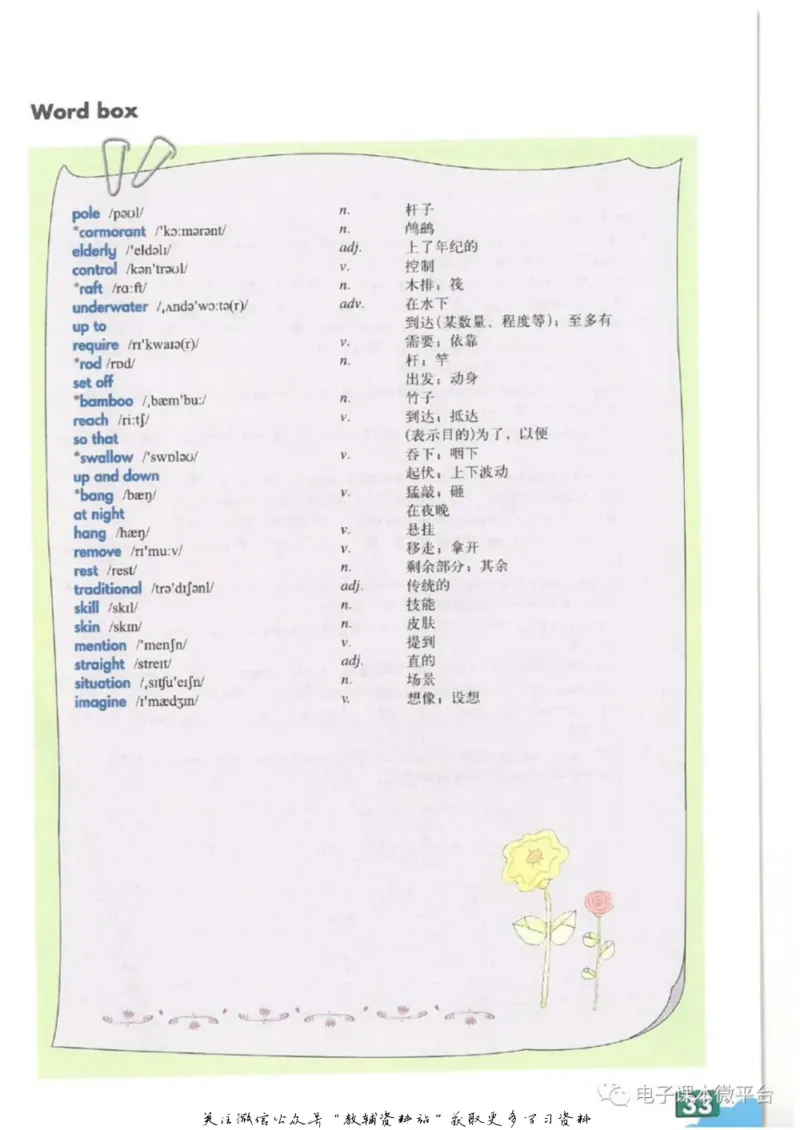 Word box
pole /pəʊl/ n. 杆子
*cormorant /'kɔ:mərənt/ n. 鸬鹚
elderly /'eldəlɪ/ adj. 上了年纪的
control /kən'trəʊl/ v. 控制
*raft /rɑ:ft/ n. 木排；筏
underwater /ˌʌndə'wɔ:tə(r)/ adv. 在水下
up to 到达(某数量、程度等)；至多有
require /rɪ'kwaɪə(r)/ v. 需要；依靠
*rod /rɒd/ n. 杆；竿
set off 出发；动身
*bamboo /ˌbæm'bu:/ n. 竹子
reach /ri:tʃ/ v. 到达；抵达
so that (表示目的)为了，以便
*swallow /'swɒləʊ/ v. 吞下；咽下
up and down 起伏；上下波动
*bang /bæŋ/ v. 猛敲；砸
at night 在夜晚
hang /hæŋ/ v. 悬挂
remove /rɪ'mu:v/ v. 移走；拿开
rest /rest/ n. 剩余部分；其余
traditional /trə'dɪʃənl/ adj. 传统的
skill /skɪl/ n. 技能
skin /skɪn/ n. 皮肤
mention /'menʃn/ v. 提到
straight /streɪt/ adj. 直的
situation /ˌsɪtʃu'eɪʃn/ n. 场景
imagine /ɪ'mædʒɪn/ v. 想像；设想
电子课本微平台
33
关注微信公众号"教辅资料站"获取更多学习资料